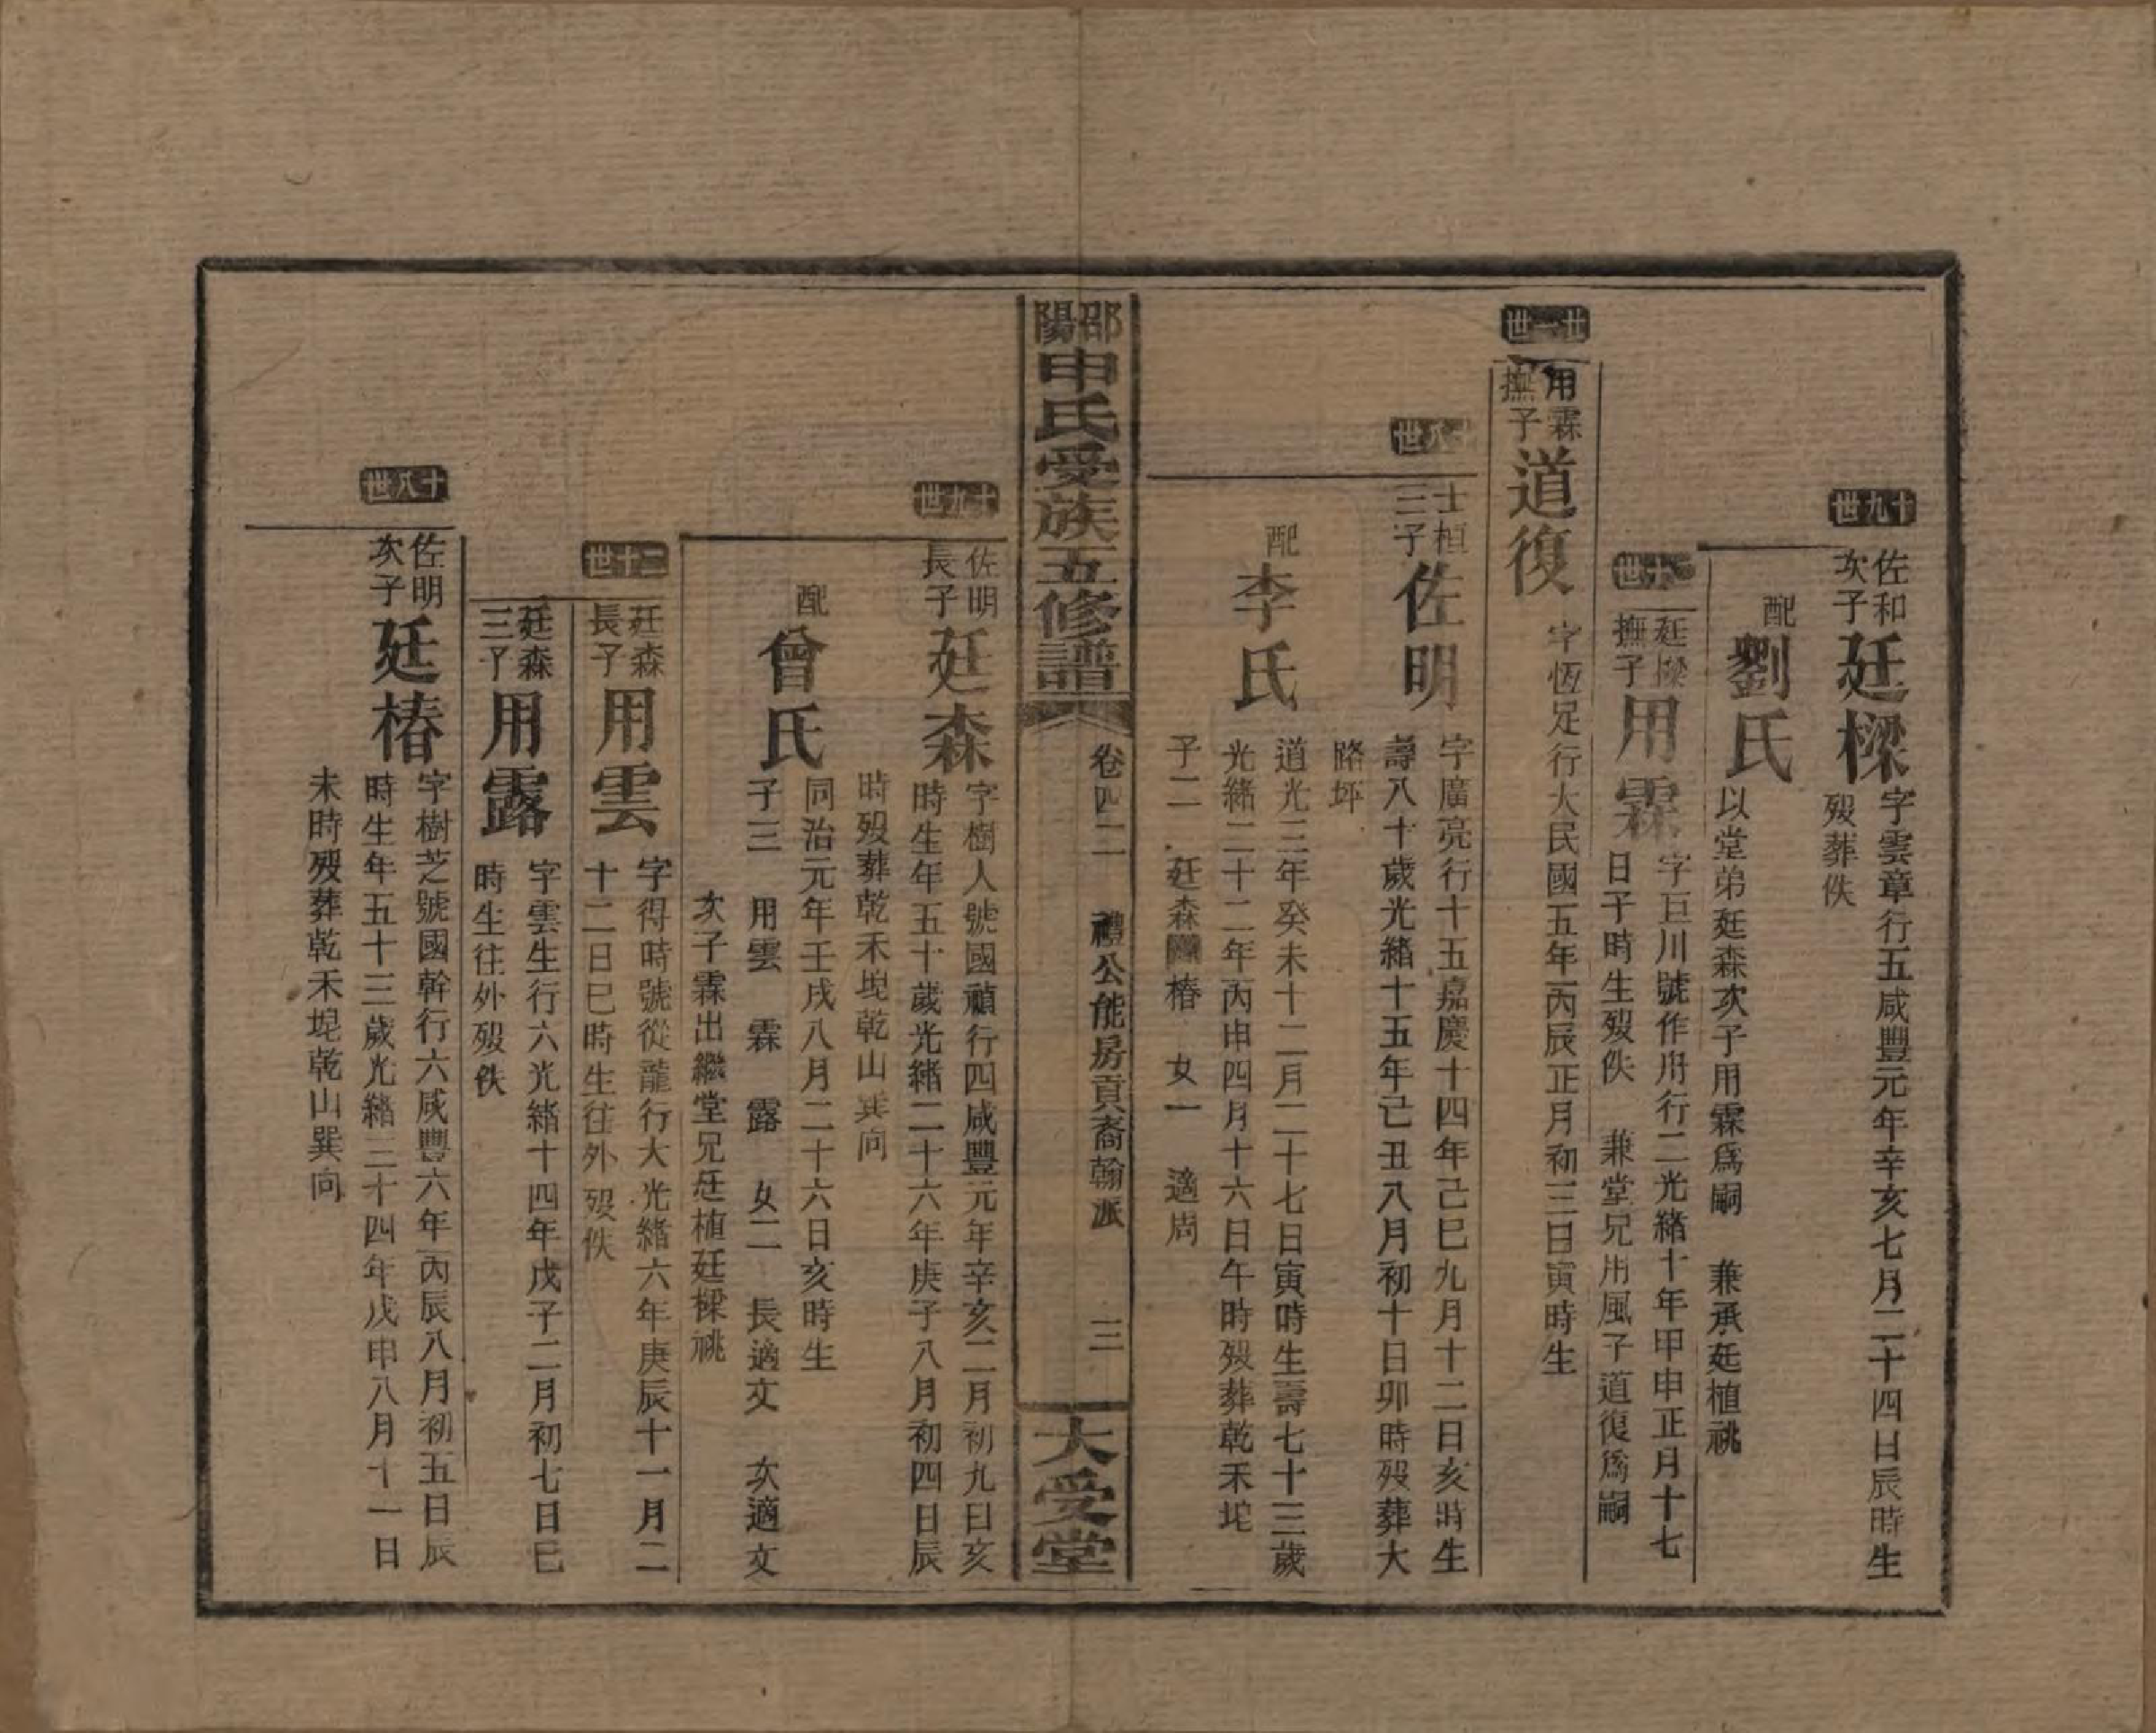 十九世
佐和次子
廷樑
字雲章行五咸豐元年辛亥七月二十四日辰時生
歿葬佚
配劉氏
以堂弟廷森次子用霖爲嗣　兼承廷植祧
二十世
廷樑撫子
用霖
字巨川號作舟行二光緒十年甲申正月十七
日子時生歿佚　兼堂兄用風子道復爲嗣
廿一世
用霖撫子
道復
字恆足行大民國五年丙辰正月初三日寅時生
十八世
士桓三子
佐明
字廣亮行十五嘉慶十四年己巳九月十二日亥時生
壽八十歲光緒十五年己丑八月初十日卯時歿葬大
路坪
配李氏
道光三年癸未十二月二十七日寅時生壽七十三歲
光緒二十二年丙申四月十六日午時歿葬乾禾坨
子二　廷森　椿　女一　適周
邵陽申氏受族五修譜
卷四二　禮公能房貢裔翰派　三
大受堂
十九世
佐明長子
廷森
字樹人號國禎行四咸豐元年辛亥二月初九日亥
時生年五十歲光緒二十六年庚子八月初四日辰
時歿葬乾禾坭乾山巽向
配曾氏
同治元年壬戌八月二十六日亥時生
子三　用雲　霖　露　女二　長適文　次適文
次子霖出繼堂兄廷植廷樑祧
二十世
廷森長子
用雲
字得時號從龍行大光緒六年庚辰十一月二
十二日巳時生往外歿佚
廷森三子
用露
字雲生行六光緒十四年戊子二月初七日巳
時生往外歿佚
十八世
佐明次子
廷椿
字樹芝號國幹行六咸豐六年丙辰八月初五日辰
時生年五十三歲光緒三十四年戊申八月十一日
未時歿葬乾禾坭乾山巽向